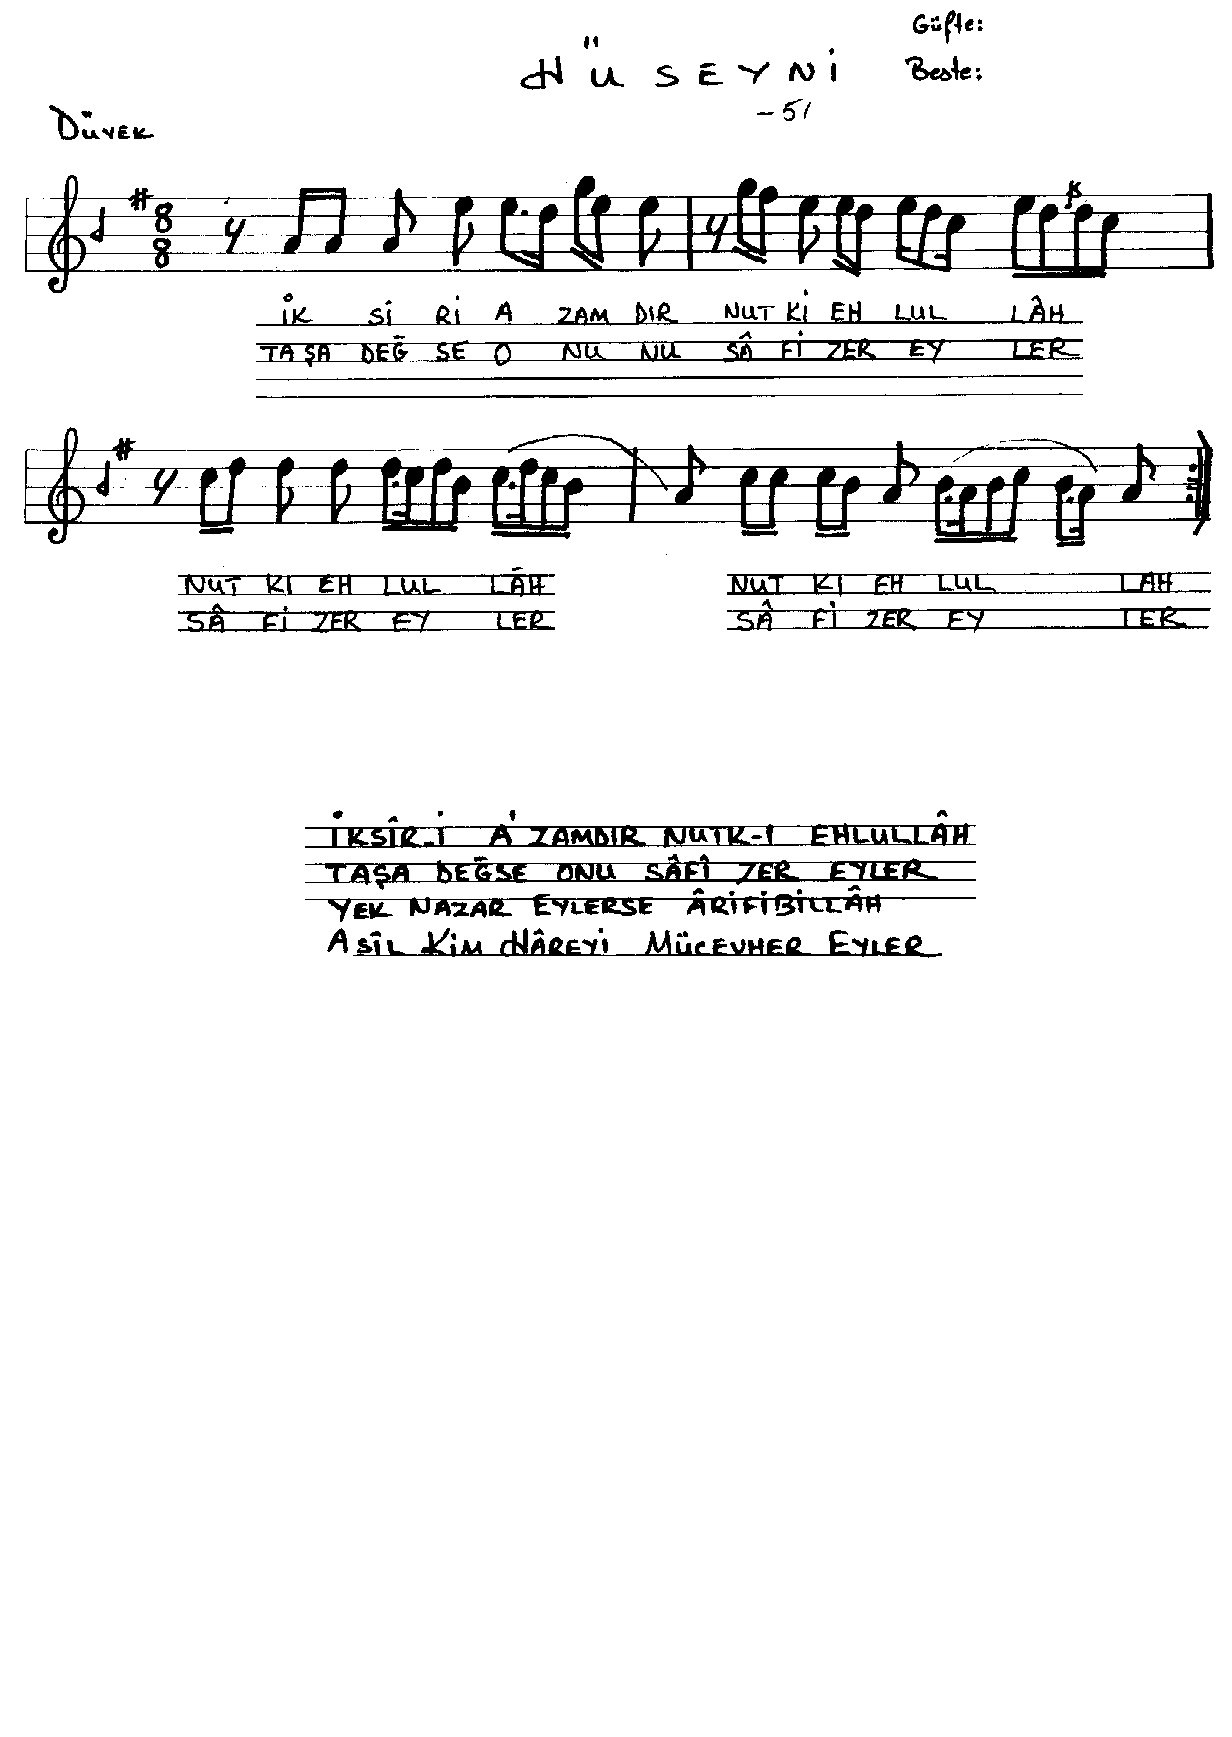 Güfte:
HÜSEYNİ
Beste:
- 51
DÜYEK
8
8
İK Sİ Rİ A ZAM DIR NUT Kİ EH LUL LÂH
TAŞA DEĞ SE O NU NU SÂ Fİ ZER EY LER
NUT KI EH LUL LÂH NUT KI EH LUL LAH
SÂ Fİ ZER EY LER SÂ Fİ ZER EY LER
İKSÎR-İ A'ZAMDIR NUTK-I EHLULLÂH
TAŞA DEĞSE ONU SÂFÎ ZER EYLER
YEK NAZAR EYLERSE ÂRİFİBİLLÂH
ASÎL KİM HÂREYİ MÜCEVHER EYLER